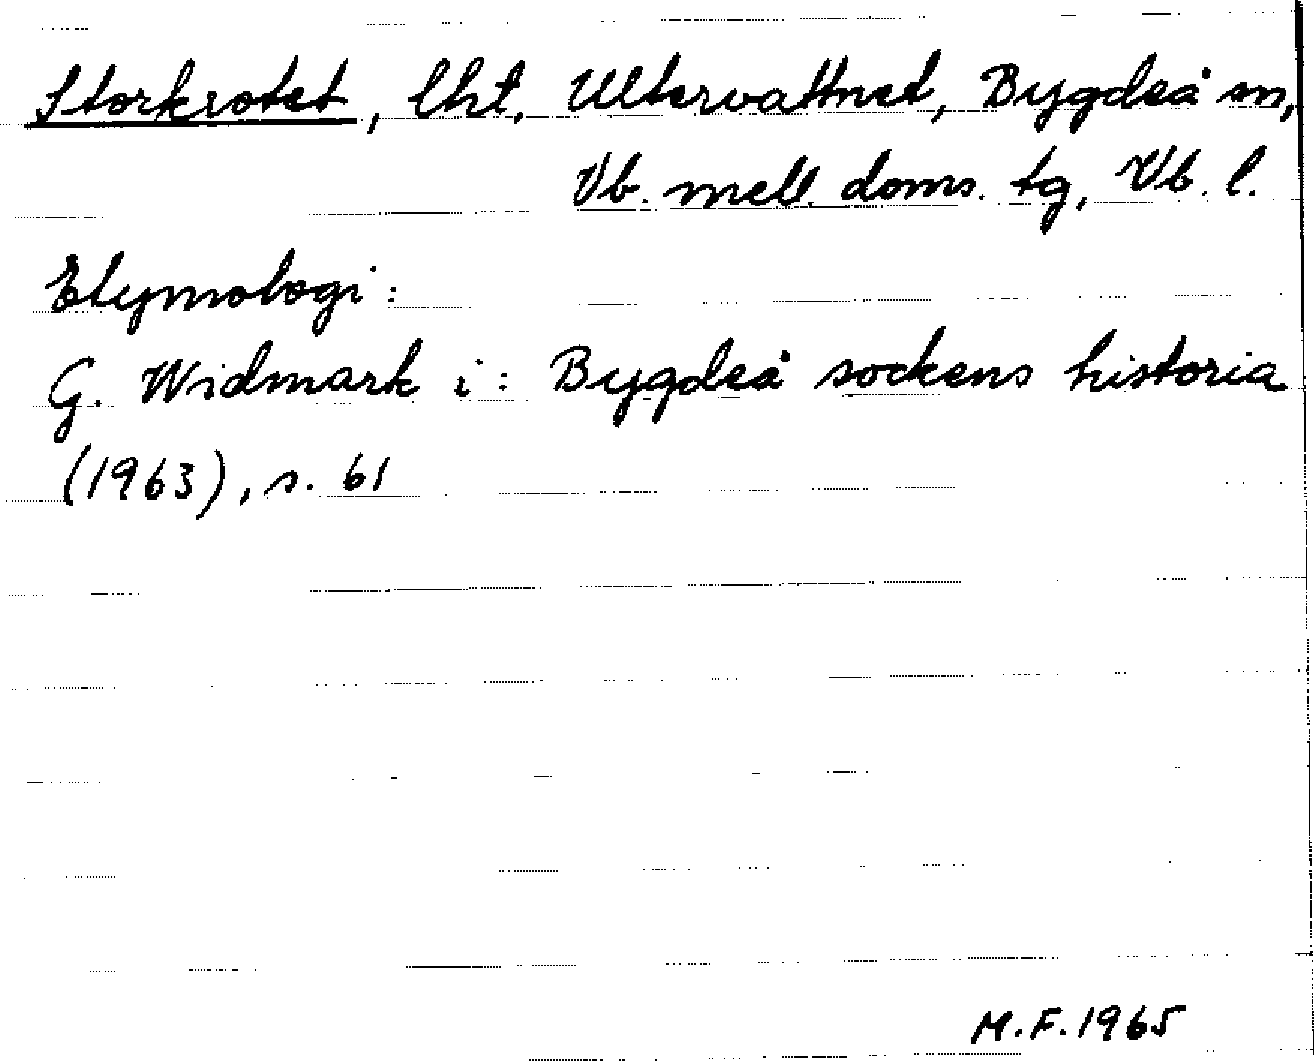 Storkrotet, lht, Ultervattnet, Bygdeå sn,
Vb. mell. doms. tg, Vb. l.
Etymologi:
G. Widmark i: Bygdeå sockens historia
(1963), s. 61
M.F. 1965